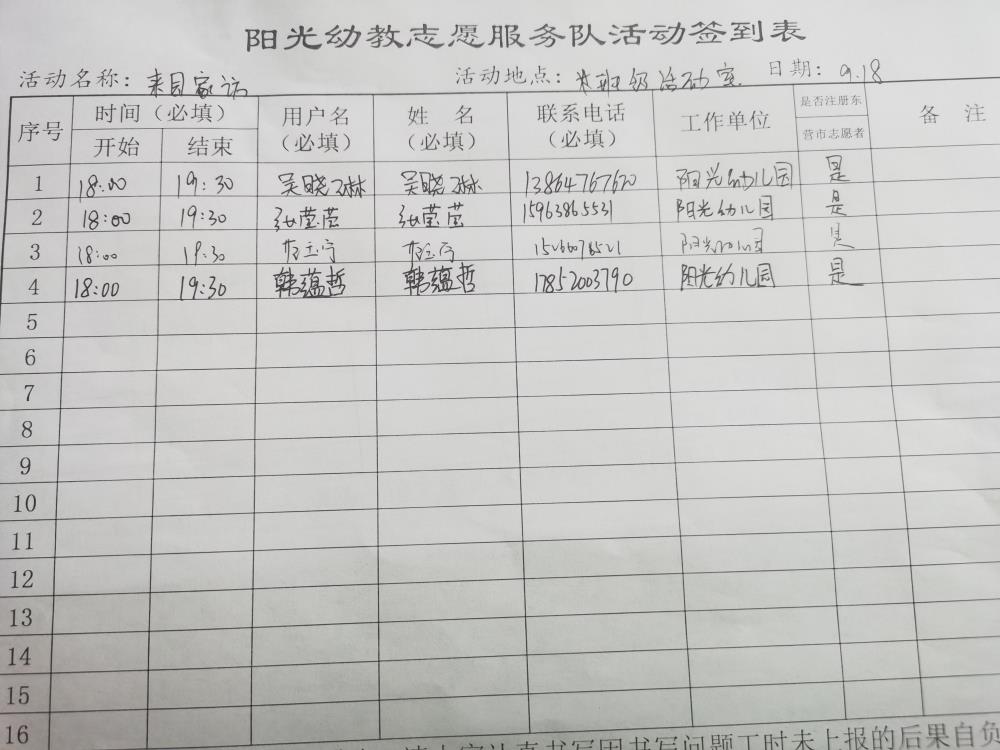 阳光幼教志愿服务队活动签到表
活动名称：来园家访 活动地点：本班级活动室 日期：9.18
序号 时间（必填） 用户名（必填） 姓 名（必填） 联系电话（必填） 工作单位 是否注册东营市志愿者 备 注
开始 结束
1 18:00 19:30 吴晓琳 吴晓琳 13864767670 阳光幼儿园 是
2 18:00 19:30 张莹莹 张莹莹 15963865531 阳光幼儿园 是
3 18:00 19:30 阳光幼儿园 是
4 18:00 19:30 韩蕴哲 韩蕴哲 17852003790 阳光幼儿园 是
5
6
7
8
9
10
11
12
13
14
15
16
书写因书写问题工时未上报的后果自负